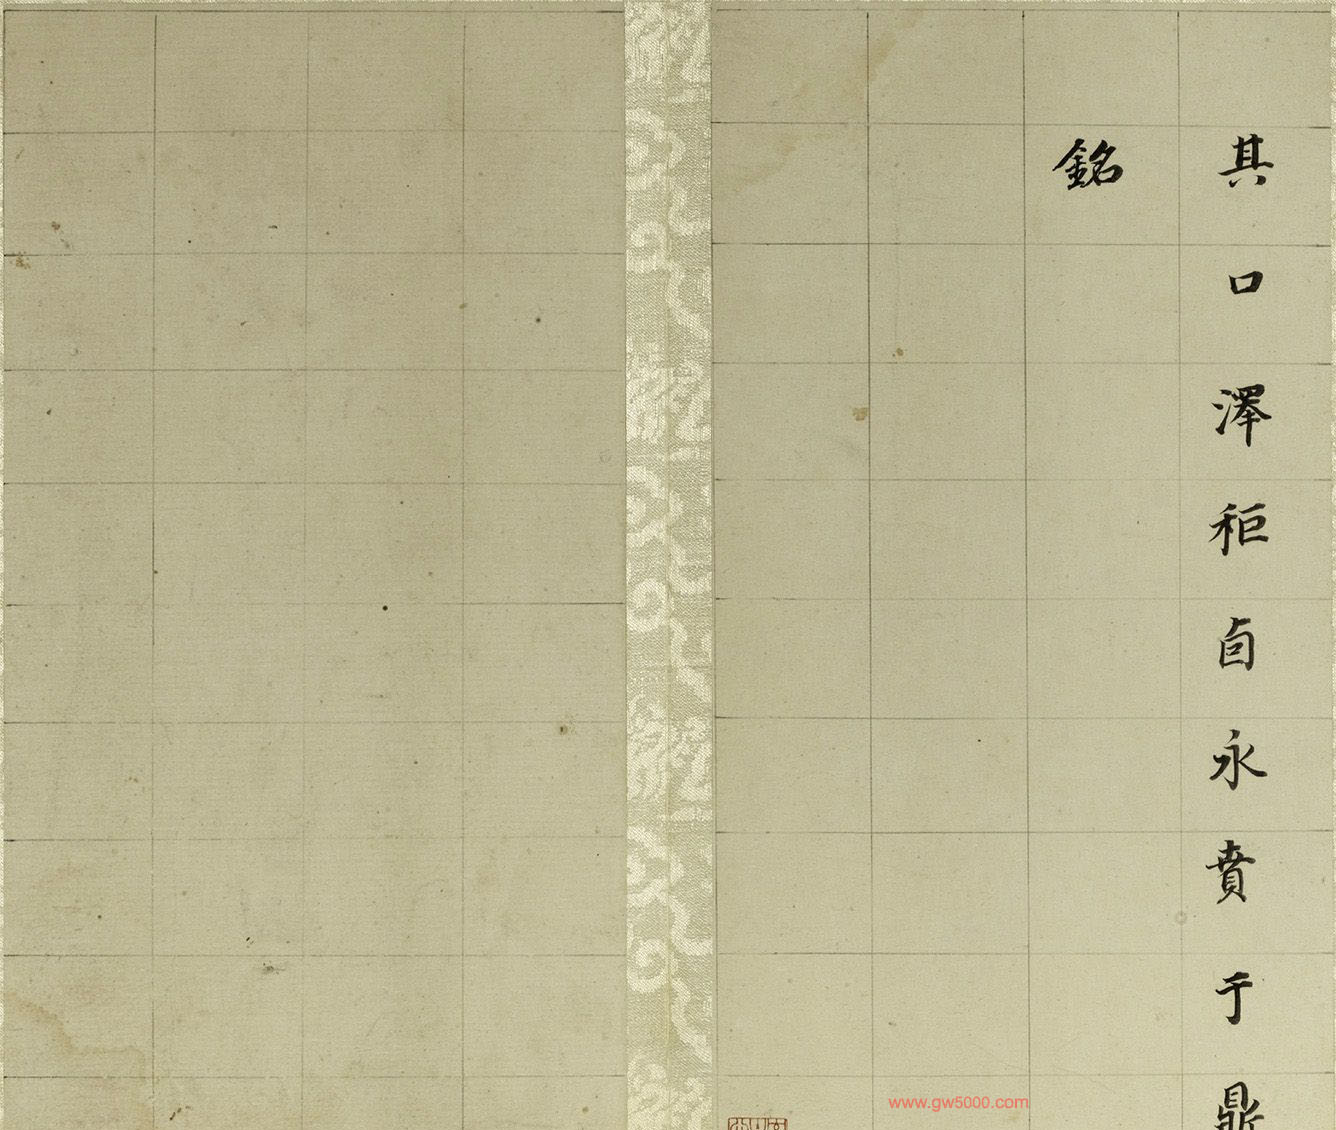 其口澤秬卣永賁于鼎
銘
www.gw5000.com